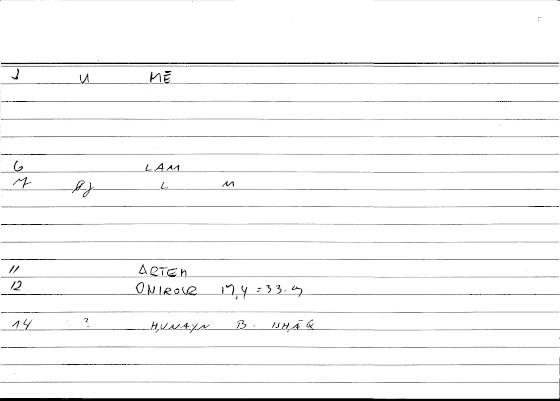 1 U MĒ
6 LAM
7 L M
11 ARTEM
12 ONIROCR 17,4 = 33.9
14 ? ḤUNAYN B. ISḤĀQ